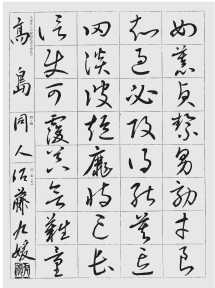 女慕貞絜男効才良
知過必改得能莫忘
罔談彼短靡恃己長
信使可覆器欲難量
高島 同人 佐藤